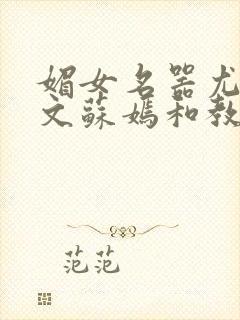 媚女名器尤
文蘇媽和教
范范